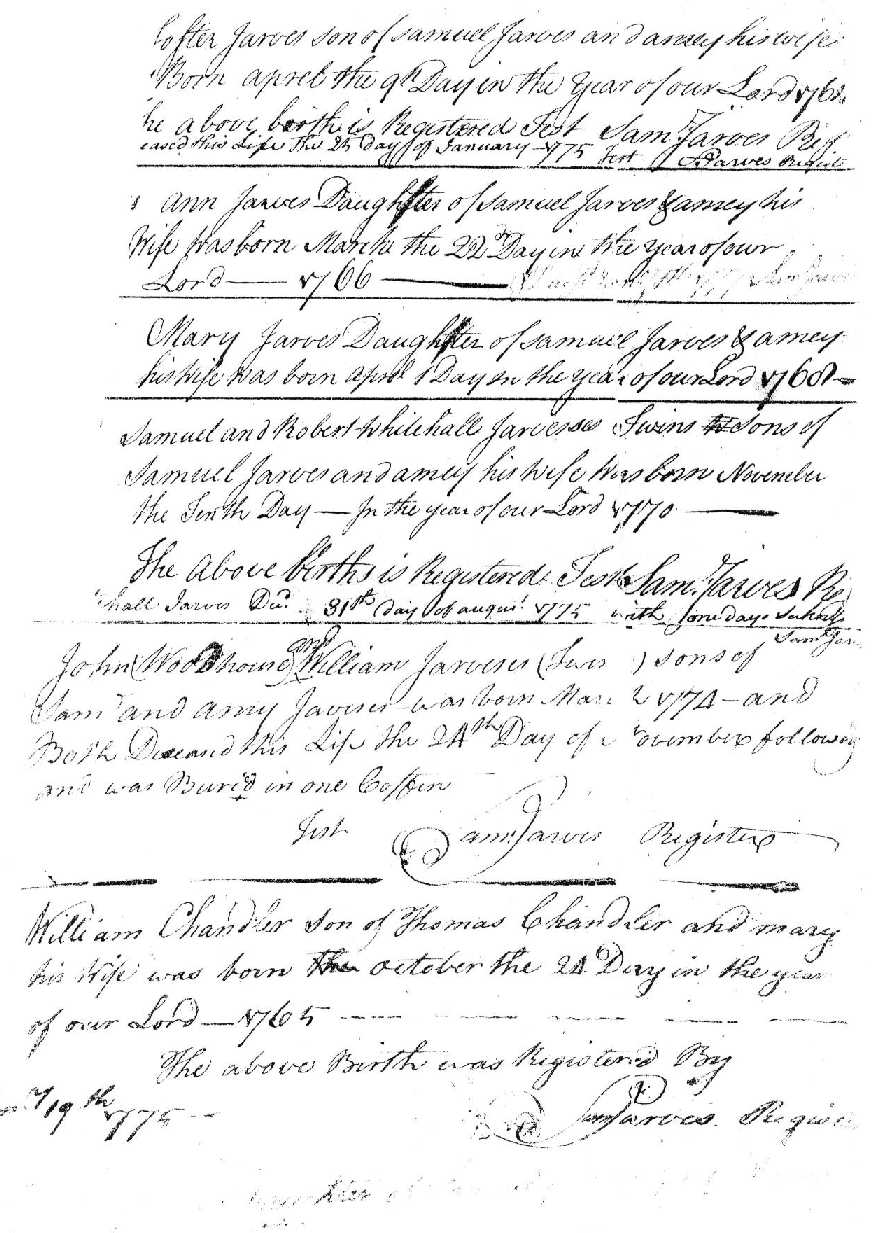 Foster Jarves son of Samuel Jarves and amey his wife
Born aprel the 9th Day in the Year of our Lord 176
he above birth is Registered Test Sam Jarves Reg
eased this Life the 25 day of January 1775 Test S Jarves Regist
ann Jarves Daughter of Samuel Jarves & amey his
Wife Was born March the 22d Day in the year of our
Lord — 1766 —
Mary Jarves Daughter of Samuel Jarves & amey
his Wife Was born aprel 1 Day in the year of our Lord 1768 —
Samuel and Robert Whitehall Jarveses Twins sons of
Samuel Jarves and amey his Wife Was born November
the Tenth Day — In the year of our Lord 1770 —
The above births is Registered Test Sam. Jarves Re
hall Jarves Decd. 31th day of augus 1775 with one days
Sam Jar
John Woodhouse and William Jarveses (Twis ) sons of
Saml and amy Jarveser was born Mar 2 1774 — and
Both Deceased this Life the 24th Day of November following
and was Buried in one Coffen
Test Sam Jarves Register
William Chandler son of Thomas Chandler and mary
his Wife was born the october the 24 Day in the year
of our Lord — 1765 —
The above Birth was Registered By
19th 1775 — Sam Jarves Regis